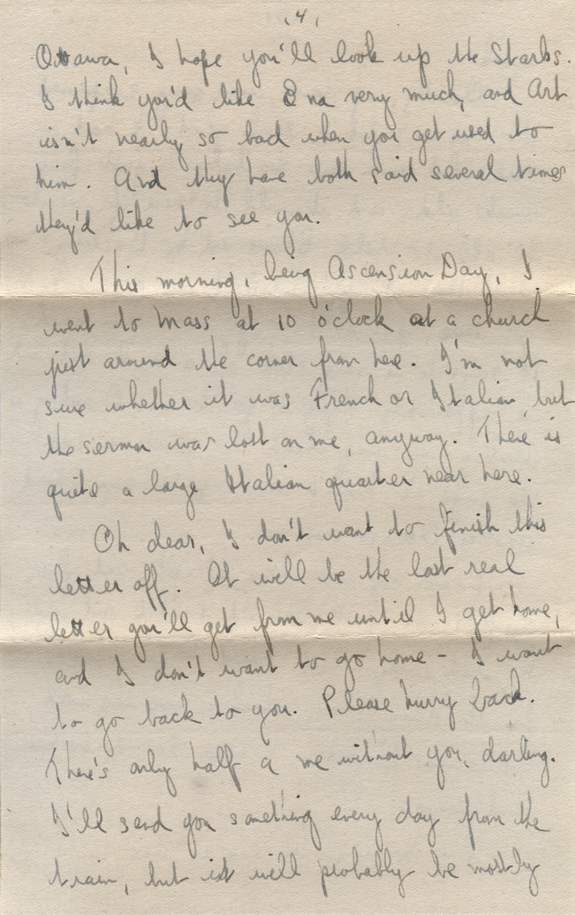 (4)
Ottawa, I hope you'll look up the Starks.
I think you'd like Ena very much, and Art
isn't nearly so bad when you get used to
him. And they have both said several times
they'd like to see you.
This morning, being Ascension Day, I
went to Mass at 10 o'clock at a church
just around the corner from here. I'm not
sure whether it was French or Italian but
the sermon was lost on me, anyway. There is
quite a large Italian quarter near here.
Oh dear, I don't want to finish this
letter off. It will be the last real
letter you'll get from me until I get home,
and I don't want to go home - I want
to go back to you. Please hurry back.
There's only half a me without you, darling.
I'll send you something every day from the
train, but it will probably be mostly